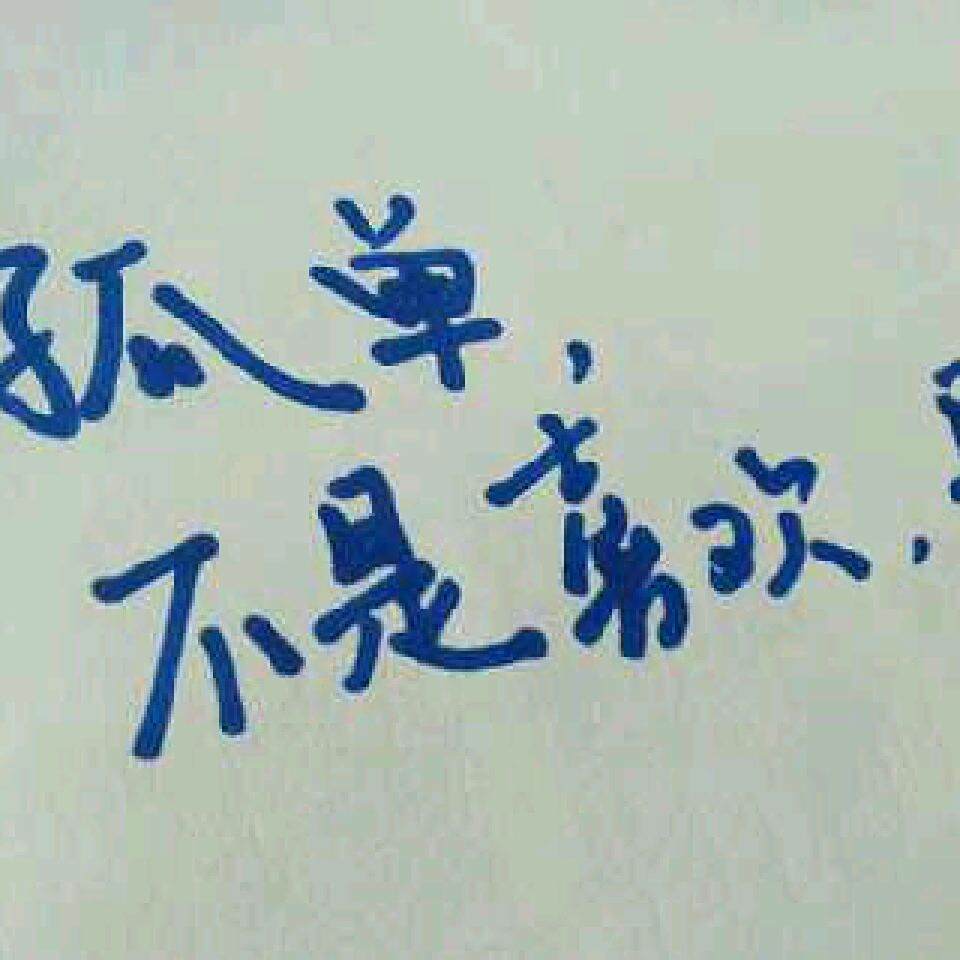 孤单，
不是喜欢，